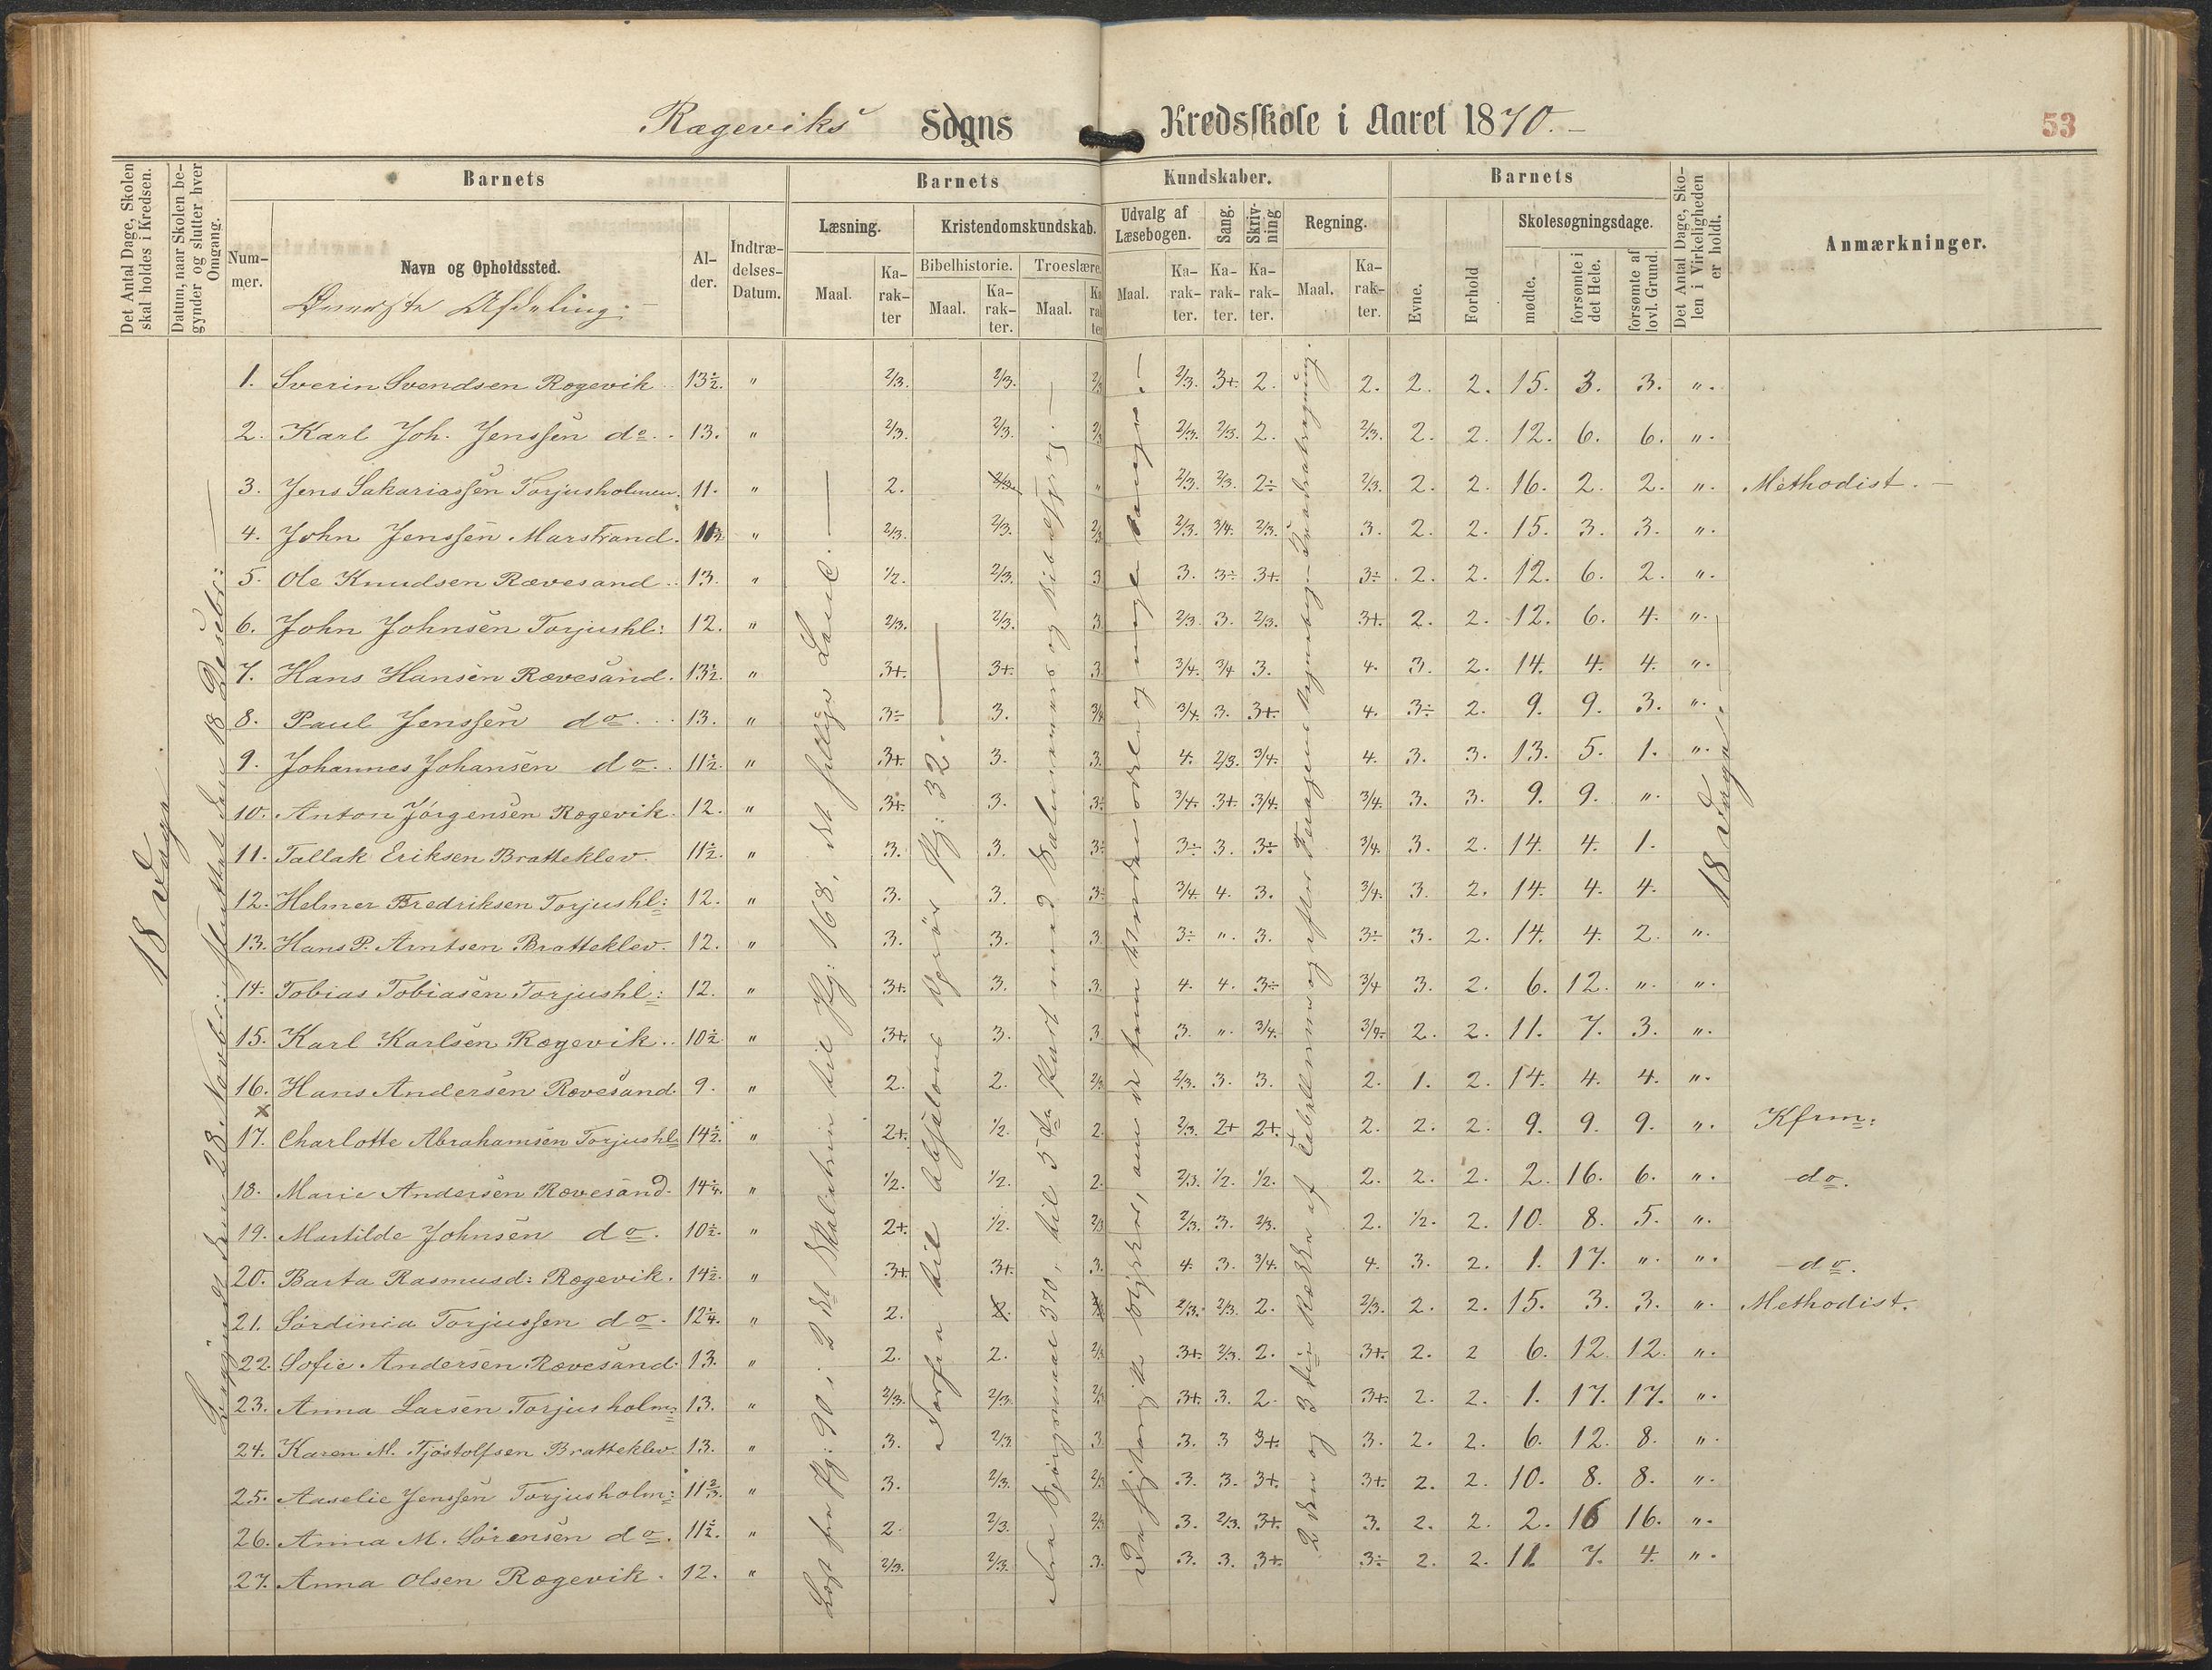 Rægeviks Sogns Kredsskole i Aaret 1870.-
53
Det Antal Dage, Skolen skal holdes i Kredsen.
Datum, naar Skolen begynder og slutter hver Omgang.
Barnets
Nummer.
Navn og Opholdssted.
Alder.
Indtrædelses-Datum.
Barnets Kundskaber.
Læsning.
Maal.
Karakter
Kristendomskundskab.
Bibelhistorie.
Maal.
Karakter.
Troeslære.
Maal.
Karakter
Udvalg af Læsebogen.
Maal.
Karakter.
Sang.
Karakter.
Skrivning
Karakter.
Regning.
Maal.
Karakter.
Barnets
Evne.
Forhold
Skolesøgningsdage.
mødte.
forsømte i det Hele.
forsømte af lovl. Grund.
Det Antal Dage, Skolen i Virkeligheden er holdt.
Anmærkninger.
Øverste Afdeling:-
18 Dage
18 Dage
1. Sverin Svendsen Rogevik 13½. " 2/3. 2/3. 2/3 2/3. 3+. 2. 2. 2. 2. 15. 3. 3. ".
2. Karl Joh. Jenssen do. 13. " 2/3. 2/3. 2/3 2/3. 2/3. 2. 2/3. 2. 2. 12. 6. 6. ".
3. Jens Sakariassen Torjusholmen. 11. " 2. 2/3. " 2/3. 2/3. 2÷ 2/3. 2. 2. 16. 2. 2. ". Methodist.-
4. John Jenssen Marstrand. " 2/3. 2/3. 2/3 2/3. 3/4. 2/3. 3. 2. 2. 15. 3. 3. ".
5. Ole Knudsen Rævesand. 13. " 1/2. 2/3. 3 3. 3÷ 3+. 3÷. 2. 2. 12. 6. 2. ".
6. John Johnsen Torjushl: 12. " 2/3. 2/3. 3. 2/3. 3. 2/3. 3+. 2. 2. 12. 6. 4. ".
7. Hans Hansen Rævesand. 13½. " 3+. 3+. 3. 3/4. 3/4 3. 4. 3. 2. 14. 4. 4. ".
8. Paul Jenssen do. 13. " 3÷ 3. 3/4 3/4. 3. 3+. 4. 3÷ 2. 9. 9. 3. ".
9. Johannes Johansen do. 11½. " 3+. 3. 3. 4. 2/3. 3/4. 4. 3. 3. 13. 5. 1. ".
10. Anton Jørgensen Rogevik. 12. " 3+. 3. 3÷ 3/4. 3+. 3/4. 3/4. 3. 3. 9. 9. ".
11. Tallak Eriksen Bratteklev. 11½. " 3. 3. 3÷ 3÷ 3. 3÷ 3/4. 3. 2. 14. 4. 1.
12. Helmer Fredriksen Torjushl: 12. " 3. 3. 3÷ 3/4. 4. 3. 3/4. 3. 2. 14. 4. 4.
13. Hans P. Arntsen Bratteklev. 12. " 3. 3. 3. 3÷ ". 3. 3÷ 3. 2. 14. 4. 2. ".
14. Tobias Tobiasen Torjushl: 12. " 3+. 3. 3. 4. 4. 3÷ 3/4 3. 2. 6. 12. ". ".
15. Karl Karlsen Rægevik. 10½ " 3+. 3. 3. 3. ". 3/4. 3/4. 2. 2. 11. 7. 3. ".
16. Hans Andersen Rævesand. 9. " 2. 2. 2/3 2/3. 3. 3. 2. 1. 2. 14. 4. 4. ".
x
17. Charlotte Abrahamsen Torjushl: 14½. " 2+. 1/2. 2. 2/3. 2+ 2+. 2. 2. 2. 9. 9. 9. ". Kfrm:
18. Marie Andersen Rævesand. 14¼. " 1/2. 1/2. 2. 2/3. 1/2. 1/2. 2. 2. 2. 2. 16. 6. ". do.
19. Martilde Johnsen do. 10½. " 2+. 1/2. 2/3 2/3. 3. 2/3. 2. 1/2. 2. 10. 8. 5. ".
20. Barta Rasmusd: Rogevik. 14½. " 3+. 3+. 3. 4. 3. 3/4. 4. 3. 2. 1. 17. ". ". do.
21. Sørdinia Torjussen do. 12¼. " 2. 2. 2/3. 2/3. 2. 2/3. 2. 2. 15. 3. 3. ". Methodist.
22. Sofie Andersen Rævesand. 13. " 2. 2. 2/3 3+. 2/3. 2. 3+. 2. 2 6. 12. 12. ".
23. Anna Larsen Torjusholm: 13. " 2/3. 2/3. 2/3 3+. 3. 2. 3+. 2. 2. 1. 17. 17. ".
24. Karen M. Tjøstolfsen Bratteklev. 13. " 3. 2/3. 3. 3. 3 3+. 3. 2. 2. 6. 12. 8. ".
25. Aaselie Jenssen Torjusholm: 11⅔. " 3. 2/3. 2/3 3. 3. 3+. 3+. 2. 2. 10. 8. 8. ".
26. Anna M. Sørensen do. 11½. " 2. 2/3. 2/3 3. 2/3. 3+. 3. 2. 2. 2. 16 16. ".
27. Anna Olsen Rogevik. 12. " 2/3. 2/3. 3. 3. 3. 3+. 3÷ 2. 2. 11 7. 4. ".